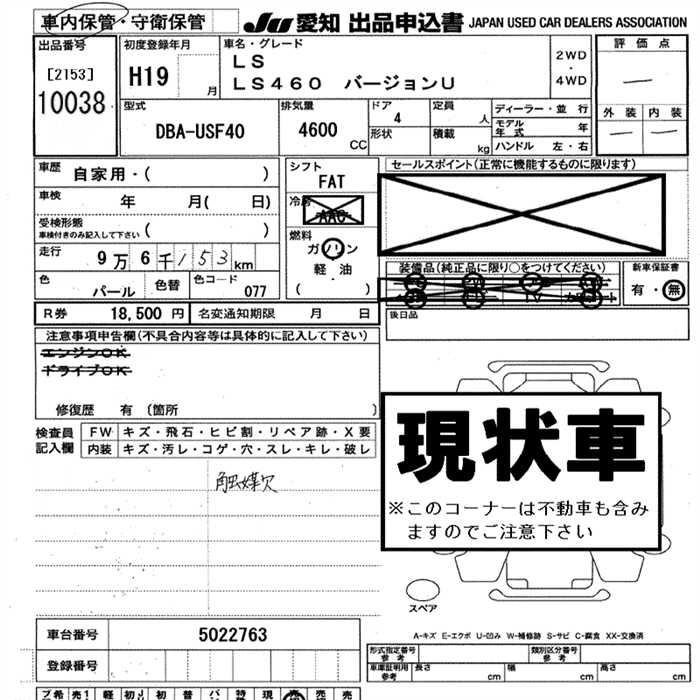 車内保管・守衛保管
JU 愛知 出品申込書 JAPAN USED CAR DEALERS ASSOCIATION
出品番号
[2153]
10038
初度登録年月
H19 月
車名・グレード
LS
LS460 バージョンU
2WD
・
4WD
評価点
外装 内装
型式
DBA-USF40
排気量
4600 CC
ドア
4
形状
定員
人
積載
kg
ディーラー・並行
モデル年式 年
ハンドル 左・右
車歴
自家用・( )
車検
年 月( 日)
受検形態
車検付きのみ記入して下さい ( )
走行
9万6千153km
色
パール
色替
色コード
077
シフト
FAT
冷房
AAC
燃料
ガソリン
軽・油
( )
セールスポイント(正常に機能するものに限ります)
装備品(純正品に限り○をつけてください)
新車保証書
有・無
後日品
R券 18,500 円
名変通知期限 月 日
注意事項申告欄(不具合内容等は具体的に記入して下さい)
エンジンOK
ドライブOK
修復歴 有 (箇所 )
検査員
記入欄
FW キズ・飛石・ヒビ割・リペア跡・X要
内装 キズ・汚レ・コゲ・穴・スレ・キレ・破レ
触媒欠
現状車
※このコーナーは不動車も含み
ますのでご注意下さい
スペア
A-キズ E-エクボ U-凹み W-補修跡 S-サビ C-腐食 XX-交換済
車台番号
5022763
登録番号
形式指定番号
参考
類別区分番号
参考
車庫証明用
参考
長さ cm
幅 cm
高さ cm